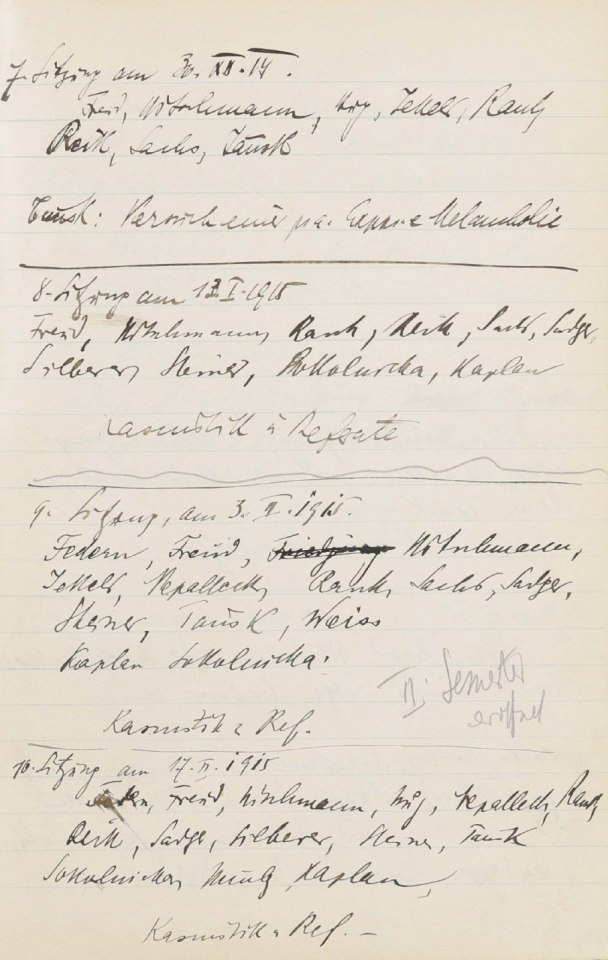 7. Sitzung am 30. XII. 14.
Freud, Hitschmann, Hug, Jekels, Rank,
Reik, Sachs, Tausk
Tausk: Versuch einer psa. Melancholie
8. Sitzung am 13. I. 1915
Freud, Hitschmann, Rank, Reik, Sachs, Sadger,
Silberer, Steiner, Sokolnicka, Kaplan
Kasuistik u Referate
9. Sitzung, am 3. II. 1915.
Federn, Freud, Friedjung Hitschmann,
Jekels, Nepalleck, Rank, Sachs, Sadger,
Steiner, Tausk, Weiss
Kaplan Sokolnicka.
II. Semester
eröffnet
Kasuistik u Ref.
10. Sitzung am 17. II. 1915
Federn, Freud, Hitschmann, Hug, Nepalleck, Rank,
Reik, Sadger, Silberer, Steiner, Tausk
Sokolnicka, Kaplan,
Kasuistik u Ref. –